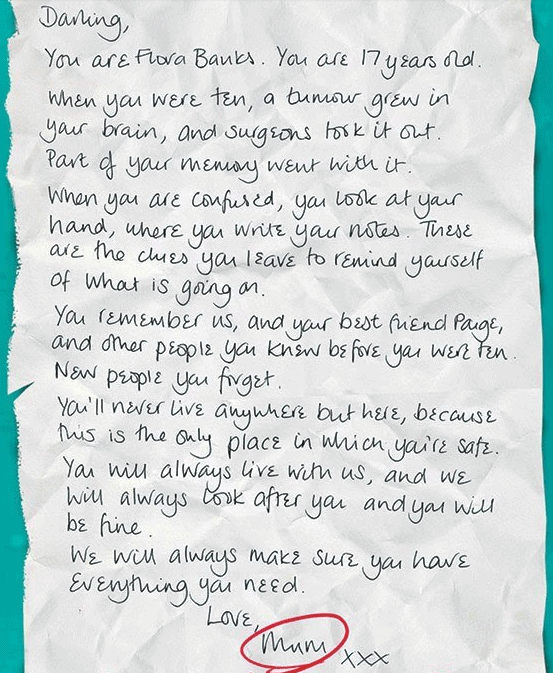 Darling,
You are Flora Banks. You are 17 years old.
When you were ten, a tumour grew in
your brain, and surgeons took it out.
Part of your memory went with it.
When you are confused, you look at your
hand, where you write your notes. These
are the clues you leave to remind yourself
of what is going on.
You remember us, and your best friend Paige,
and other people you knew before you were ten.
New people you forget.
You'll never live anywhere but here, because
this is the only place in which you're safe.
You will always live with us, and we
will always look after you and you will
be fine.
We will always make sure you have
everything you need.
Love,
Mum xxx